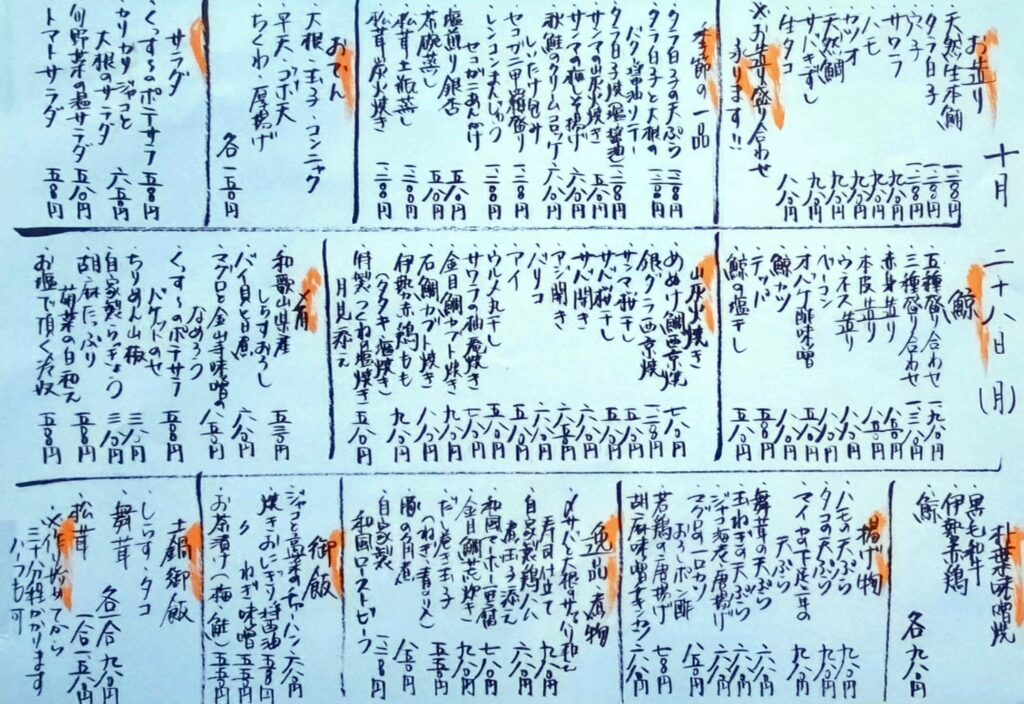 十月二十八日(月)
お造り
・天然生本鮪 一二八〇円
・タラ白子 一二八〇円
・穴子 一二八〇円
・サワラ 九八〇円
・ハモ 九八〇円
・カツオ 九八〇円
・天然鯛 九八〇円
・サバきずし 九八〇円
・生タコ 八八〇円
※お造り盛り合わせ
あります!!
季節の一品
・タラ白子の天ぷら 一二八〇円
・タラ白子と大根の
バター醤油ソテー 一二八〇円
・タラ白子焼(塩・醤油) 一二八〇円
・サンマの山椒焼き 五八〇円
・サンマの梅しそ揚げ 六八〇円
・秋鮭のクリームコロッケ 六八〇円
しいたけ包み
・セコガニ甲羅盛り 一二八〇円
・レンコンまんじゅう
セコガニあんかけ 一二八〇円
・塩煎り銀杏 五八〇円
・茶腕蒸し 五八〇円
・松茸土瓶蒸し 一二八〇円
・松茸炭火焼き 一二八〇円
おでん
・大根・玉子・コンニャク
・平天・ゴボ天
・ちくわ・厚揚げ
各一五〇円
サラダ
・くっすーのポテサラ 五八〇円
・カリカリジャコと
大根のサラダ 六五〇円
・旬野菜の温サラダ 五八〇円
・トマトサラダ 五八〇円
鯨
・五種盛り合わせ 一九八〇円
・三種盛り合わせ 一三八〇円
・赤身造り 八五〇円
・本皮造り 八五〇円
・ウネス造り 八八〇円
・ベーコン 八八〇円
・オバケ酢味噌 五八〇円
・鯨カツ 八八〇円
・テッパ 五八〇円
・鯨の塩干し 五八〇円
山椒火焼き
・めぬけ鯛西京焼 七八〇円
・銀ダラ西京焼 一二八〇円
・サンマ桜干し 五八〇円
・サバ桜干し 五八〇円
・サバ開き 六八〇円
・アジ開き 五八〇円
・バリコ 六八〇円
・アイ 五八〇円
・ウルメ丸干し 五八〇円
・サワラの柚庵焼き 七八〇円
・金目鯛カブト焼き 九八〇円
・石鯛カブト焼き 八八〇円
・伊勢赤鶏もも 九八〇円
(タタキ・塩焼き)
・特製つくね塩焼き 五八〇円
月見添え
〆肴
・和歌山県産
しらすおろし 五三〇円
・バイ貝と旦煮 六八〇円
・マグロと金山寺味噌の
なめろう 八五〇円
・くっすーのポテサラ
バケットのせ 五八〇円
・ちりめん山椒 三八〇円
・自家製らっきょう 三八〇円
・胡麻たっぷり
菊菜の白和え 五八〇円
・お塩で頂く冷奴 五八〇円
朴葉味噌焼
・黒毛和牛
・伊勢赤鶏
・鯨
各九八〇円
揚げ物
・ハモの天ぷら 九八〇円
・タコの天ぷら 九八〇円
・マイヤと下足一年の
天ぷら 九八〇円
・舞茸の天ぷら 六八〇円
・玉ねぎの天ぷら 六八〇円
・ジャコ海老・唐揚げ 六八〇円
・マグロの一口カツ
おろしポン酢 八五〇円
・若鶏の唐揚げ 七八〇円
・胡麻味噌チキンカツ 六八〇円
逸品・煮物
・〆サバと大根のサッパリ和え
寿司仕立て 九八〇円
・自家製鶏ハム
煮玉子添え 六八〇円
・和風マーボー豆腐 七八〇円
・金目鯛荒炊き 九八〇円
・だし巻き玉子 五五〇円
(ねぎ・青のり入)
・豚の角煮 八五〇円
・自家製
和風ローストビーフ 一二八〇円
御飯
・ジャコと高菜のチャーハン 六八〇円
・焼きおにぎり醤油 五八〇円
・〃 ねぎ味噌 五五〇円
・お茶漬け(梅・鮭) 五五〇円
土鍋御飯
・しらす・タコ
・舞茸 各一合九八〇円
・松茸 一合一五八〇円
※作り始めてから
三十分程かかります
ハーフも可